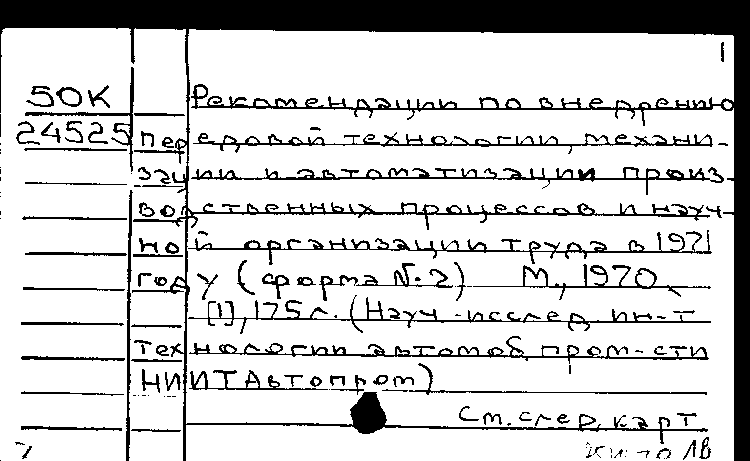 1
50К Рекомендации по внедрению
24525 передовой технологии, механи-
зации и автоматизации произ-
водственных процессов и науч-
ной организации труда в 1971
году (форма №2) М., 1970.
[1], 175 л. (Науч.-исслед. ин-т
технологии автомоб. пром-сти
НИИТАвтопром)
См. след. карт.